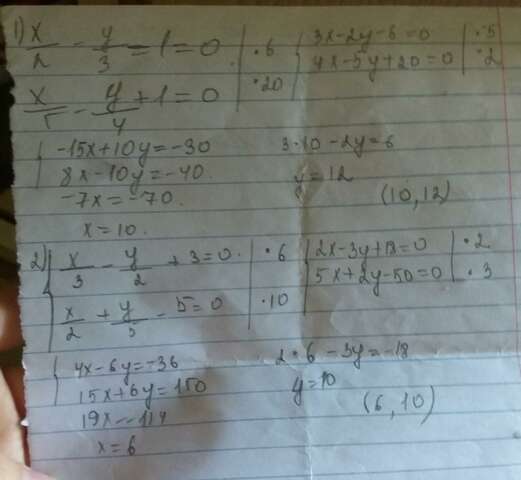 1) x/2 - y/3 = 1 = 0 | ·6 { 3x-2y-6=0 | ·5
x/5 - y/4 + 1 = 0 | ·20 4x-5y+20=0 | ·2
{ -15x+10y=-30 3·10-2y=6
8x-10y=-40 y=12
-7x=-70. (10,12)
x=10.
2) { x/3 - y/2 + 3=0. | ·6 { 2x-3y+18=0 | ·2
x/2 + y/5 - 5=0 | ·10 5x+2y-50=0 | ·3
{ 4x-6y=-36 2·6-3y=-18
15x+6y=150 y=10
19x=114 (6,10)
x=6